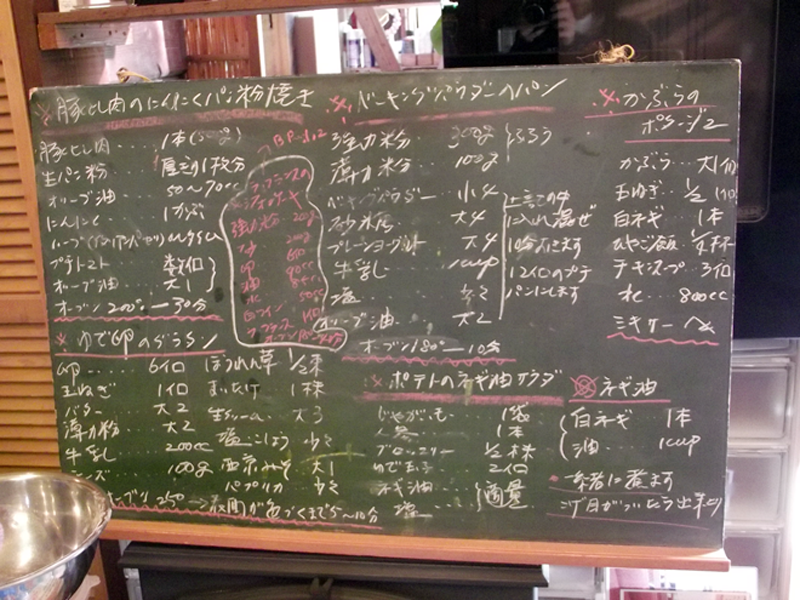 ※ 豚ヒレ肉のにんにくパン粉焼き
豚ヒレ肉 … 1本(500g)
生パン粉 食ぱん1枚分
オリーブ油 50〜70cc
にんにく 1かぶ
プチトマト 数個
オリーブ油 大1
オーブン 200° 30分
BP 小2
強力粉 200g
卵
油
水 50cc
※ ベーキングパウダーのパン
強力粉 300g
薄力粉 100g
ふるう
ベーキングパウダー 小4
砂糖 大4
プレーンヨーグルト 大4
牛乳 1cup
塩 少々
オリーブ油 大2
に入れ混ぜ
10分ねかす
12個のプチ
パンにします
オーブン180° 10分
※ かぶらの
ポタージュ
かぶら … 大1個
玉ねぎ … 1/2個
白ネギ 1本
ひやご飯 1/2杯
チキンスープ 3個
水 … 800cc
ミキサーへ
※ ゆで卵のグラタン
卵 6個
玉ねぎ 1個
バター 大2
薄力粉 大2
牛乳 200cc
チーズ 100g
ほうれん草 1/2束
まいたけ 1株
生クリーム 大3
塩こしょう 少々
西京みそ 大1
パプリカ 少々
オーブン 250° → 表面が色づくまで5〜10分
※ ポテトのネギ油サラダ
じゃがいも 1袋
人参 1本
ブロッコリー 1/2株
ゆで玉子 2個
ネギ油
塩
適量
※ ネギ油
白ネギ 1本
油 1cup
一緒に煮ます
こげ目がついたら出来上り